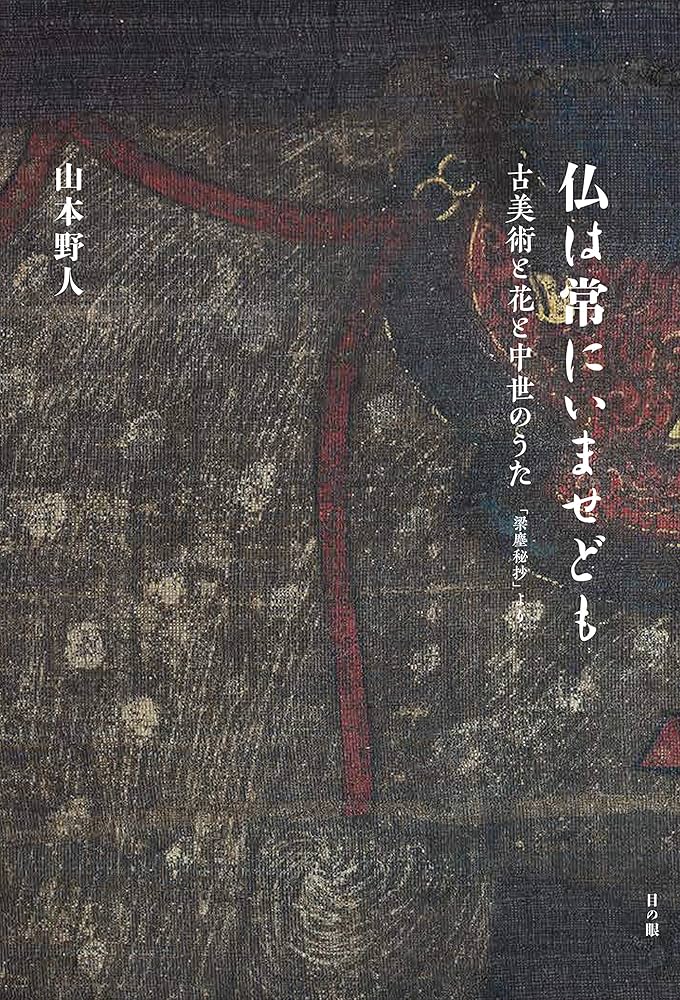 仏は常にいませども
古美術と花と中世のうた
「梁塵秘抄」より
山本野人
目の眼